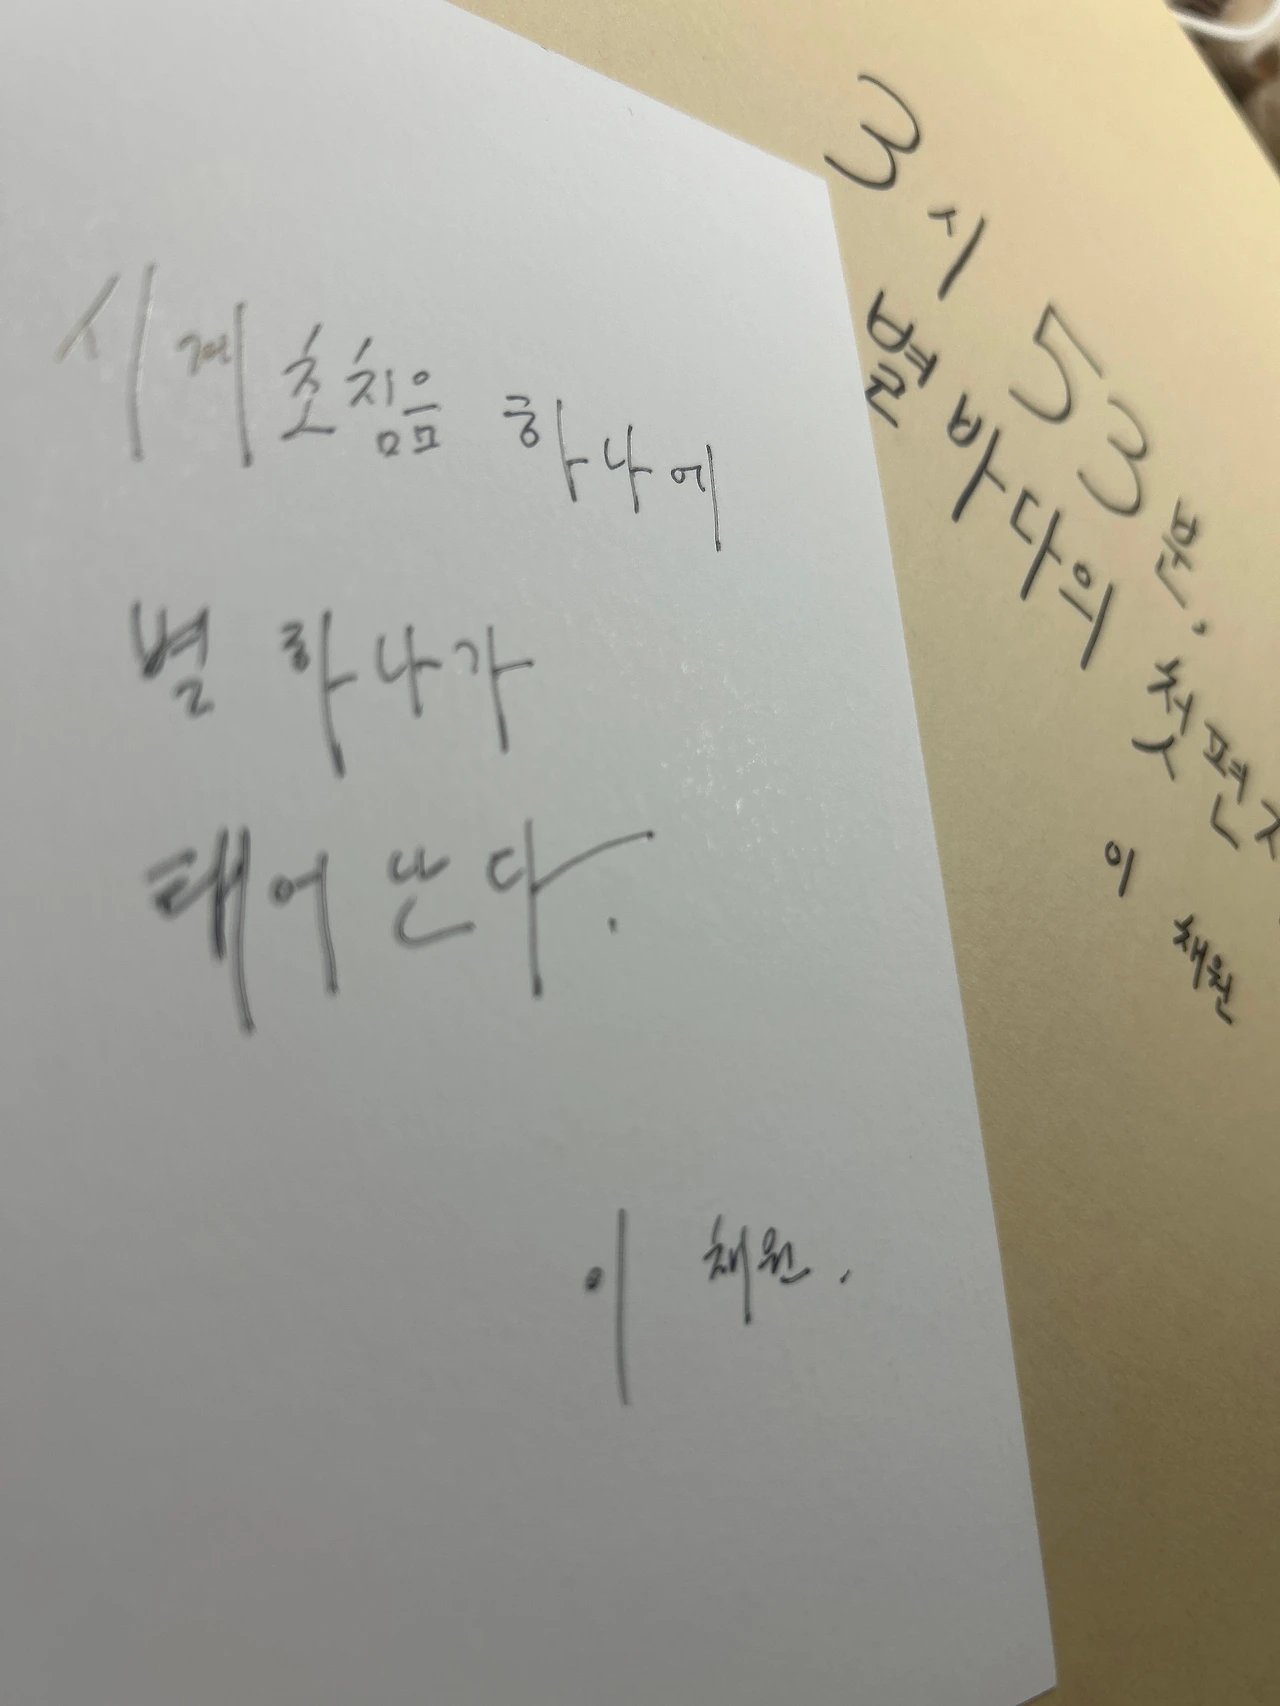 시계초침음 하나에
별 하나가
태어난다.
이 채원.
3시 53분.
별바다의 첫편지
이 채원